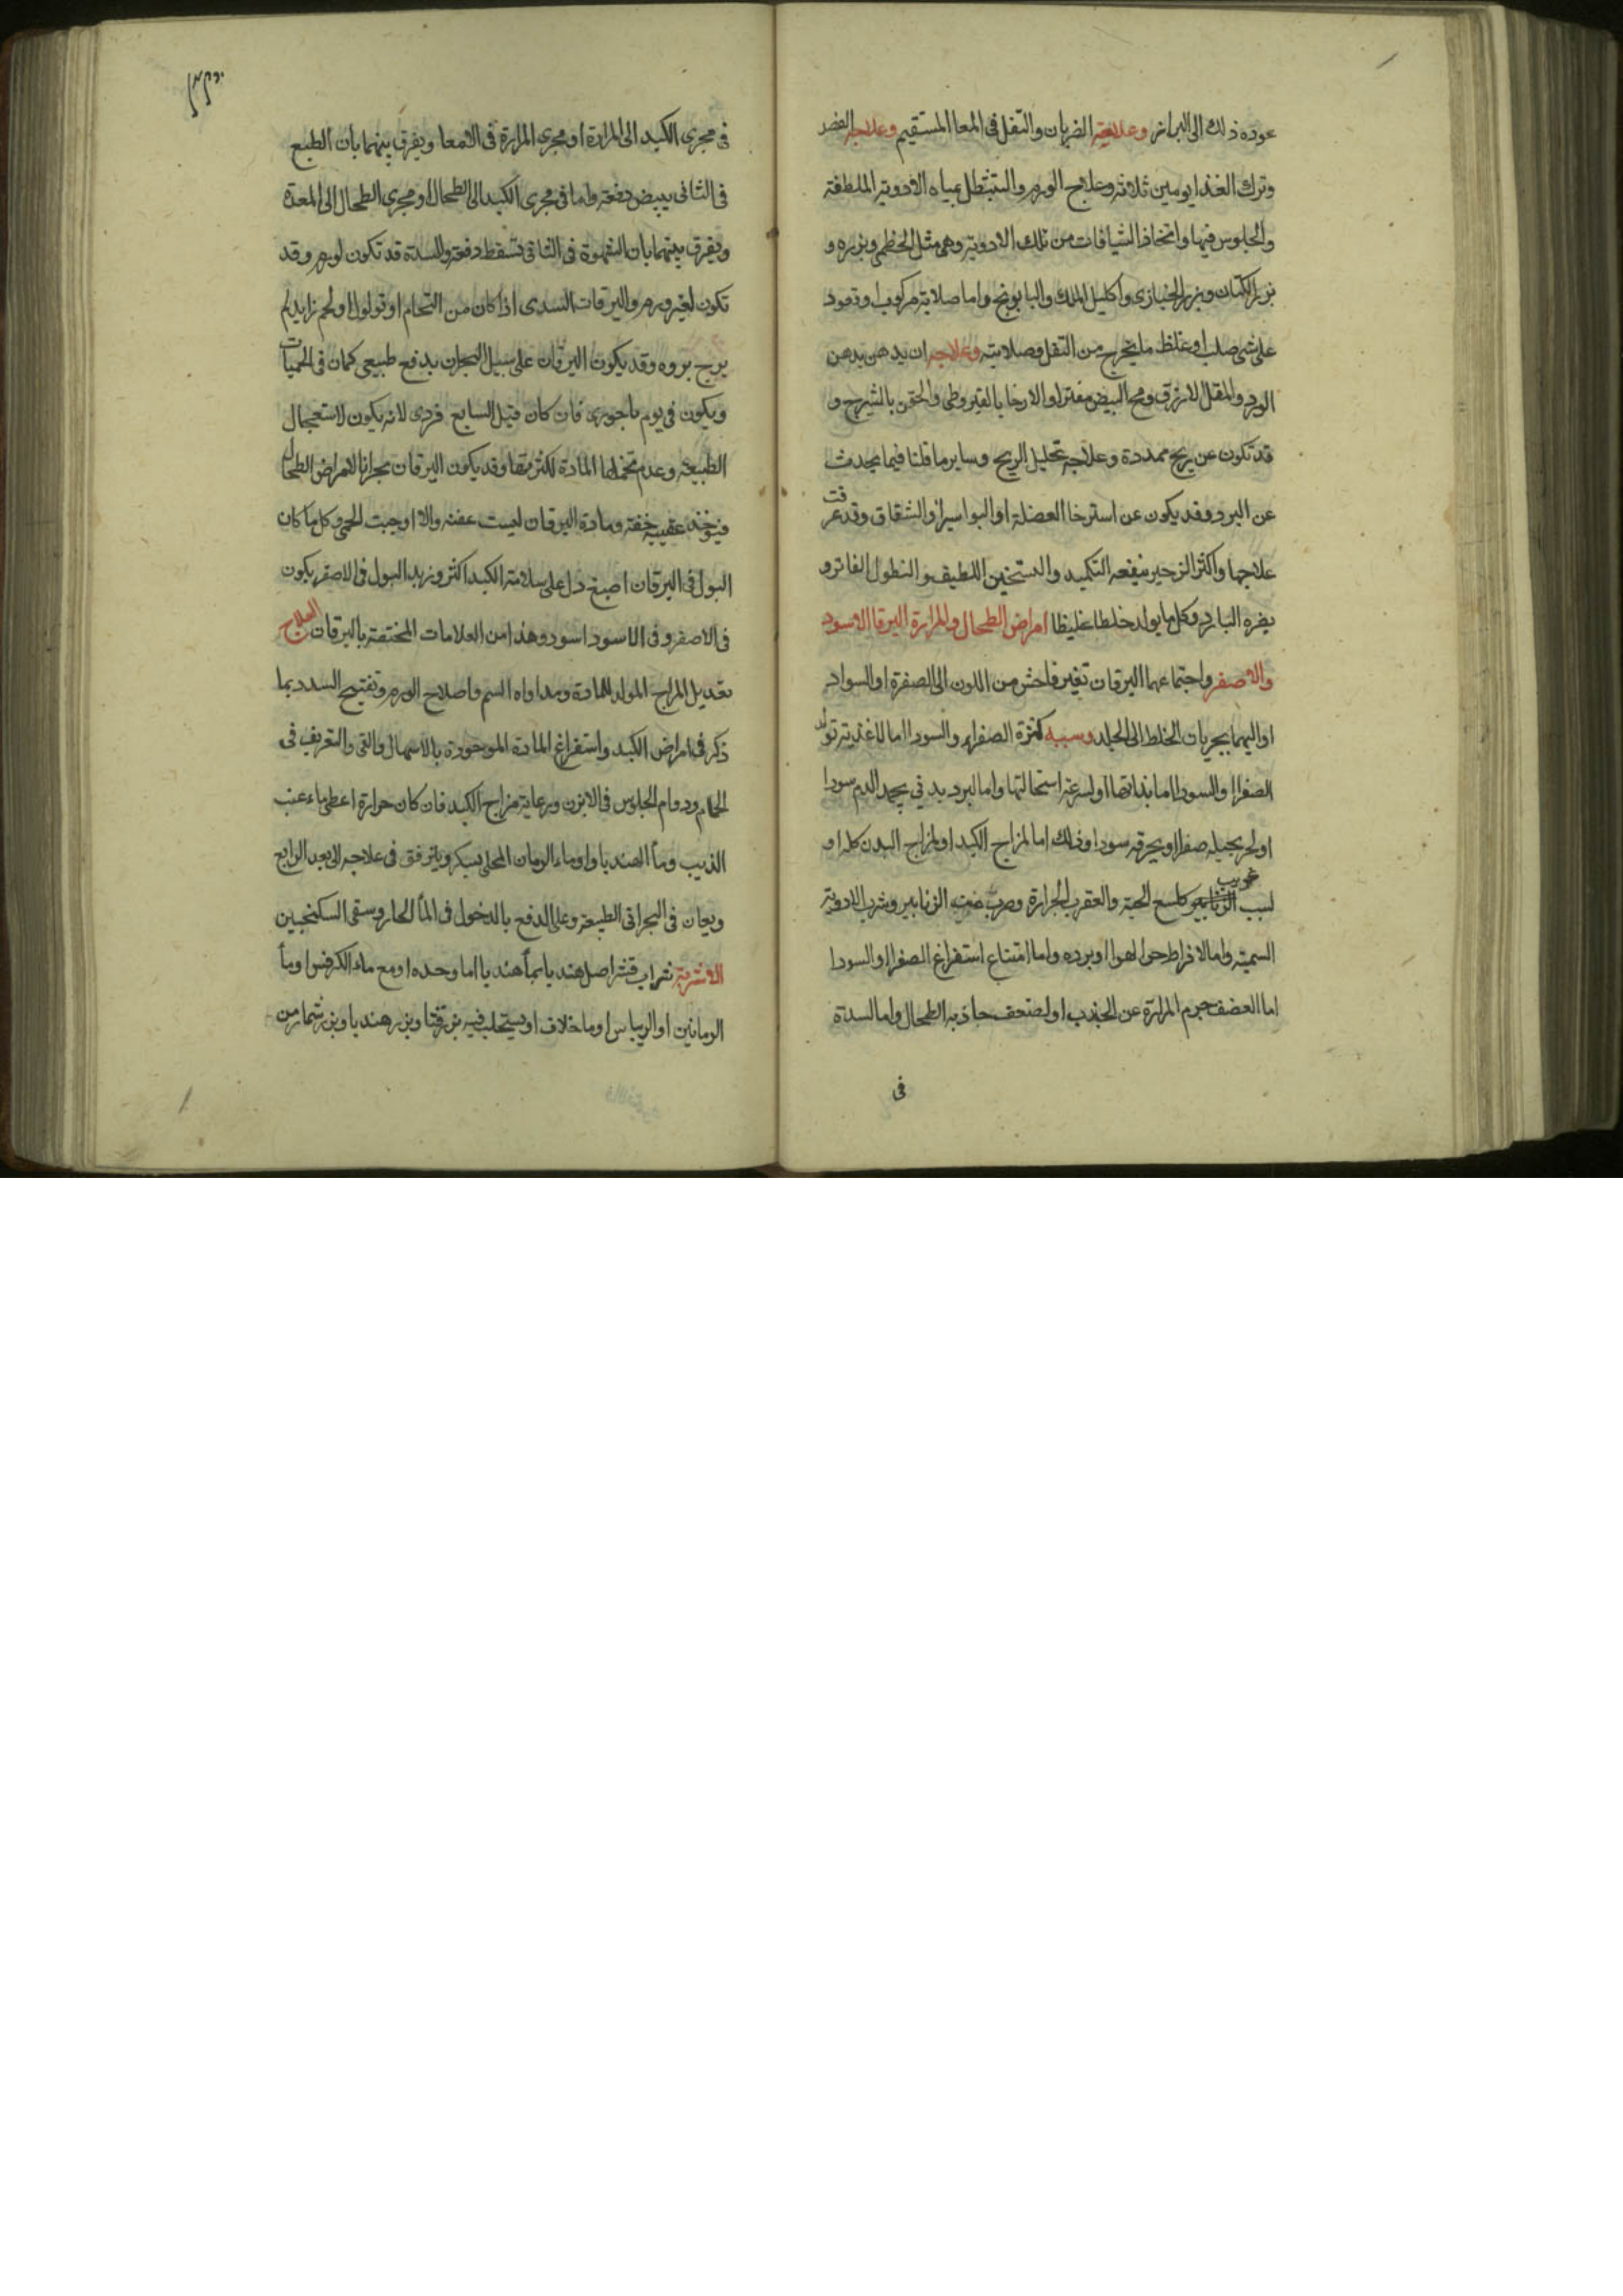 عوده ذلك الى البراز وعلامته الضربان والثقل فى المعا المستقيم وعلاجه الفصد
وترك الغذا يومين ثلاثه وعلاج الورم والتنطل بمياه الادويه الملطفة
والجلوس فيها واتخاذ الشيافات من تلك الادوية وهى مثل الخطمى وبزره و
بزر الكتان وبزر الخبازى واكليل الملك والبابونج واما صلابة مركوب او قعود
على شى صلب او غلظ ما يخرج من الثقل وصلابته وعلاجه ان يدهن بدهن
الورد والمقل الازرق ومح البيض مفترا والارخا بالقيروطى والحقن بالشيرج و
قد تكون عن ريح ممددة وعلاجه تحليل الريح وساير ما قلنا فيما يحدث
عن البرد وقد يكون عن استرخا العضلة او البواسير او الشقاق وقد عرفت
علاجها واكثر الزحير ينفعه التكميد والتسخين اللطيف والنطول الفاتر و
يضره البارد وكل ما يولد خلطا غليظا امراض الطحال والمرارة اليرقا الاسود
والاصفر واجتماعهما اليرقان تغير فاحش من اللون الى الصفرة او السواد
او اليهما بجريان الخلط الى الجلد وسببه كثرة الصفرا او السودا اما لاغذية تولد
الصفرا او السودا اما بذاتها او لسرعة استحالتها واما لبرد بدنى يجمد الدم سودا
او لحر يحيله صفرا او يحرقه سودا وذلك اما لمزاج الكبد او لمزاج البدن كله او
لسبب غريب كلسع الحية والعقرب الجرارة وضرب من الزنابير وشرب الادوية
السمية واما لافراط حر الهوا او برده واما امتناع استفراغ الصفرا او السودا
اما لضعف جرم المرارة عن الجذب او لضعف جاذبه الطحال واما لسدة
فى
فى مجرى الكبد الى المرارة او مجرى المرارة فى الامعا ويفرق بينهما بان الطبع
فى الثانى يبيض دفعة واما فى مجرى الكبد الى الطحال او مجرى الطحال الى المعدة
ويفرق بينهما بان الشهوة فى الثانى تسقط دفعة والسدة قد تكون لورم وقد
تكون لغير ورم واليرقان السدى اذا كان من التحام او ثولول او لحم زايد لم
يرج بروه وقد يكون اليرقان على سبيل البحران بدفع طبيعى كمان فى الحميات
ويكون فى يوم باحورى فان كان قبل السابع فردى لانه يكون لاستعجال
الطبيعة وعدم تحملها المادة لكثرتها وقد يكون اليرقان بحرانا لامراض الطحال
فيوخذ عقيبه خفة ومادة اليرقان ليست عفنه والا اوجبت الحمى وكل ما كان
البول فى اليرقان اصبغ دل على سلامة الكبد اكثر وزبد البول فى الاصفر يكون
فى الاصفر وفى الاسود اسود وهذا من العلامات المختصة باليرقان العلاج
تعديل المزاج المولد للمادة ومداواه السم واصلاح الورم وتفتيح السدد بما
ذكر فى امراض الكبد واستفراغ المادة الموجودة بالاسهال والقى والتعريف فى
الحمام ودوام الجلوس فى الابزن ورعاية مزاج الكبد فان كان حرارة اعطى ماء عنب
الذيب وماء الهندبا او ماء الرمان المحلى بسكر ويترفق فى علاجه الى بعد الرابع
ويعان فى البحرانى الطبيعة وعلى الدفع بالدخول فى الماء الحار وسقى السكنجبين
الاشربة شراب قشر اصل هندبا بماء هندبا اما وحده او مع ماء الكرفس او ماء
الرمانين او الريباس او ما خلاف او يستحلب فيه بزر قثا وبزر هندبا وبزر شمار من